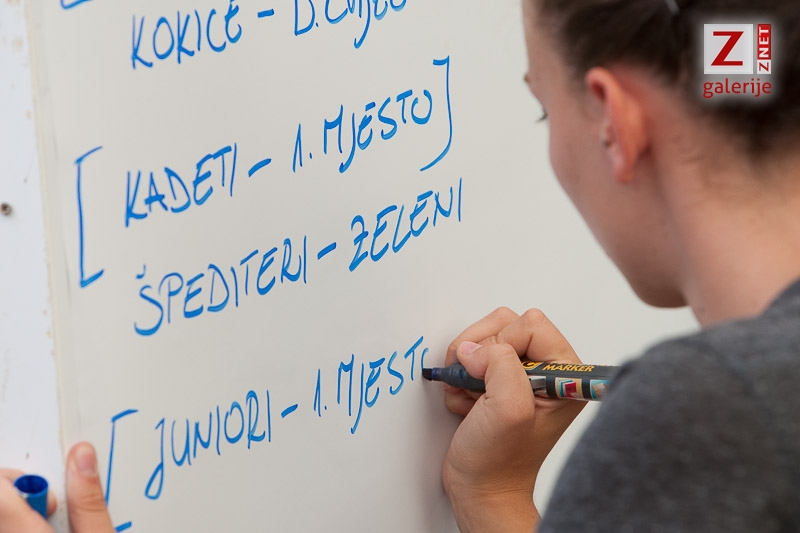 KOKICE - D.
[KADETI - 1. MJESTO]
ŠPEDITERI - ZELENI
[JUNIORI - 1. MJESTO
MARKER
Z ZNET
galerije